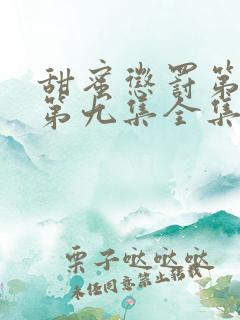 甜蜜惩罚第
第九集全集
栗子哒哒哒
未经同意禁止转载